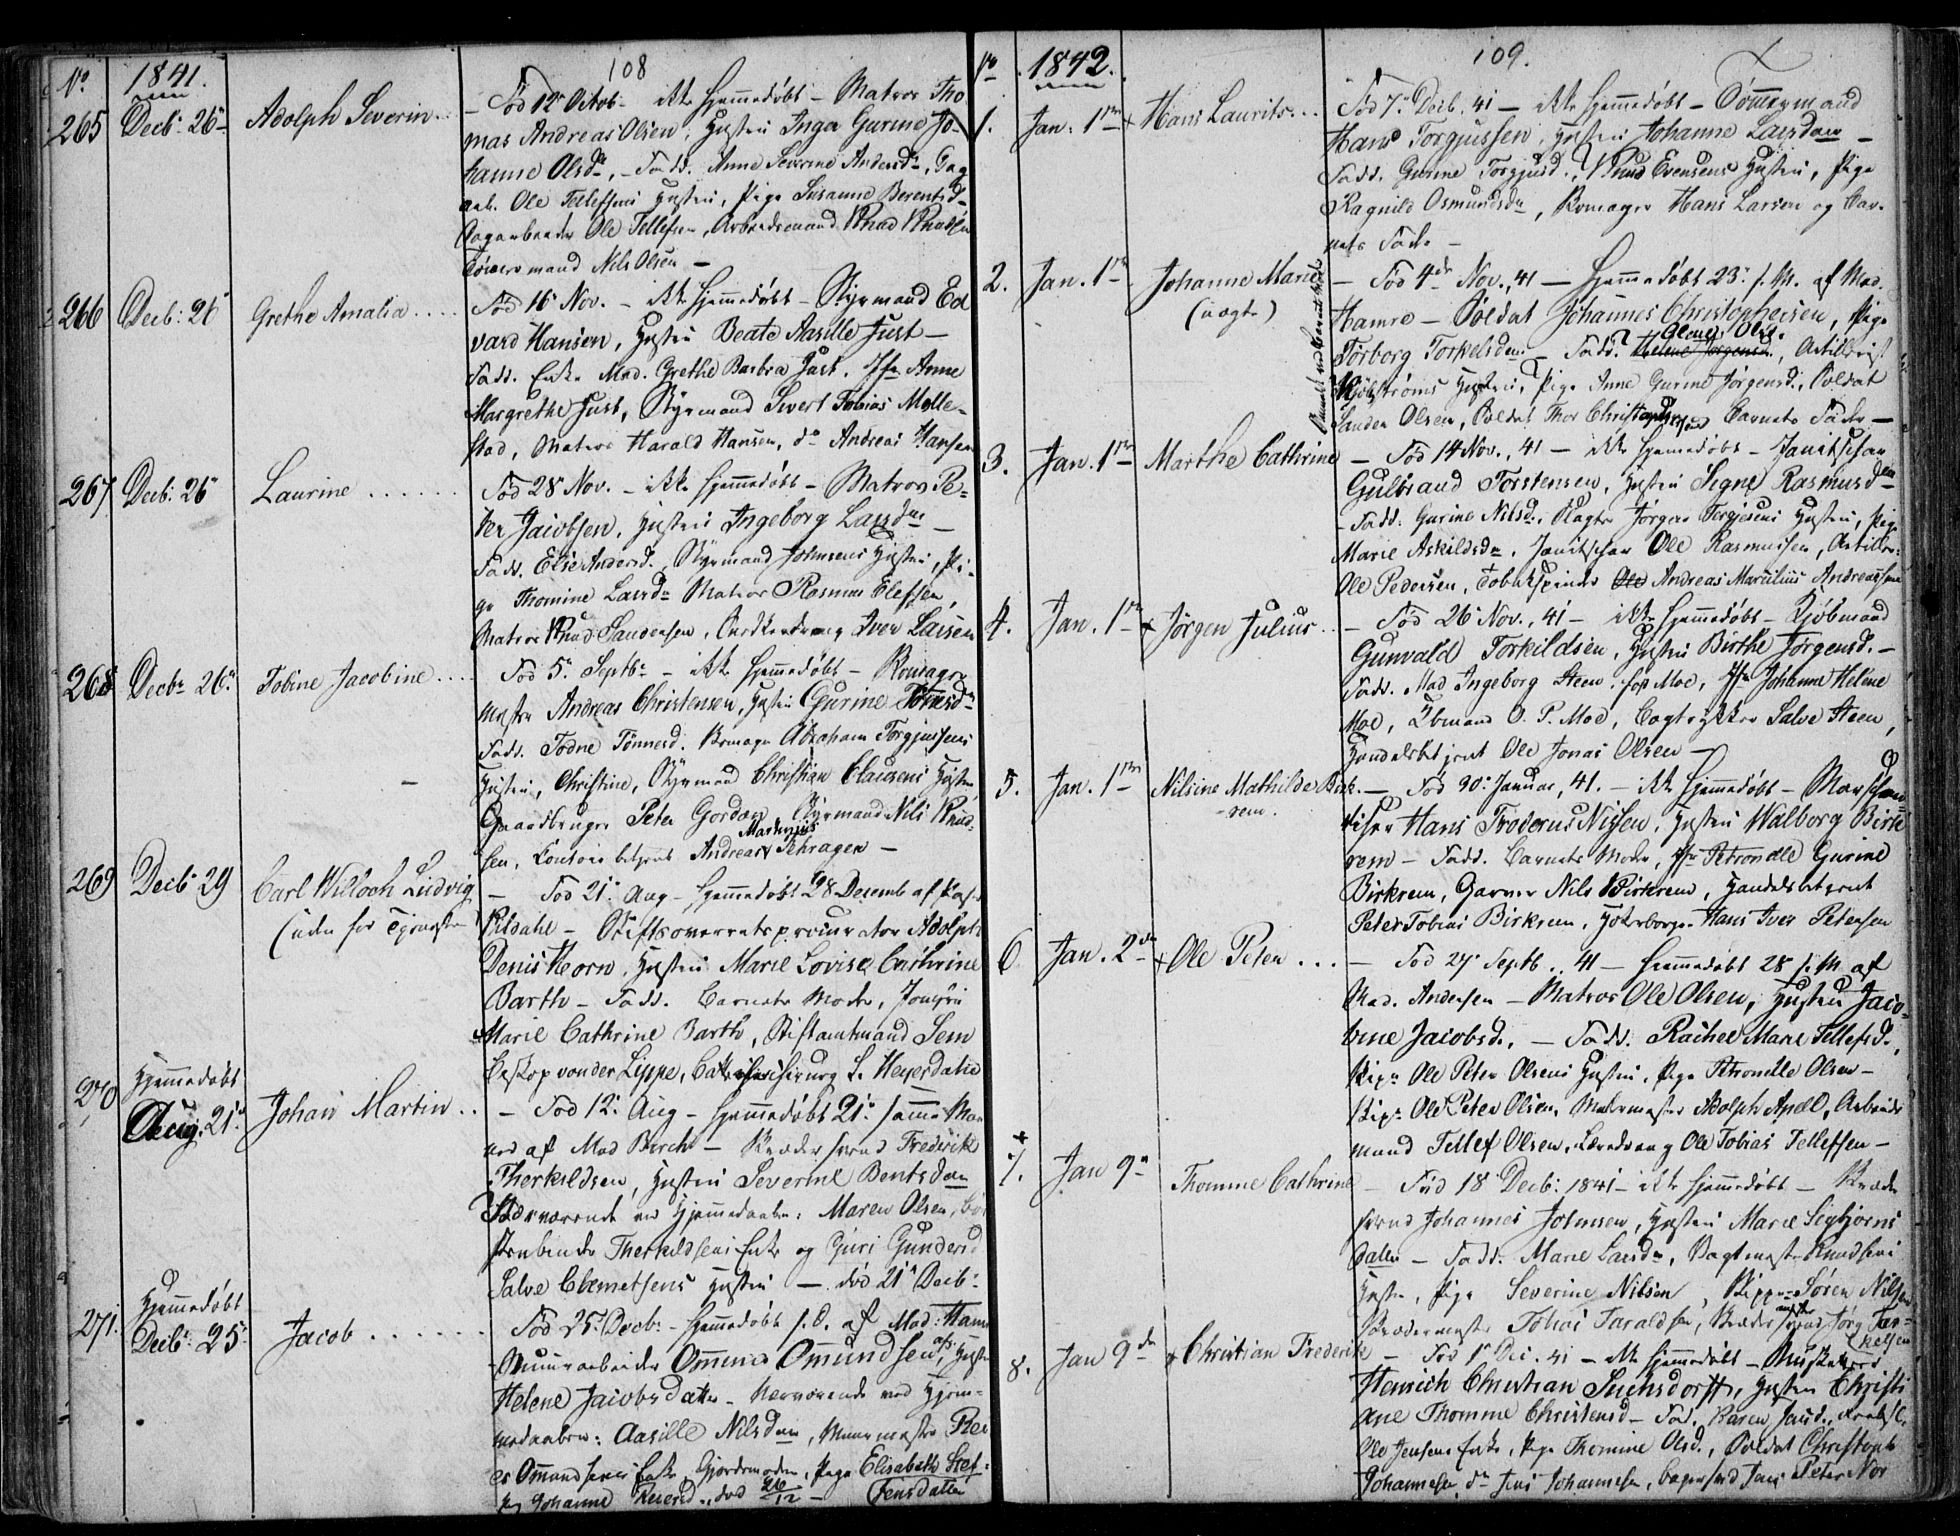 108
No 1841.
265 Decb: 26 Adolph Severin
Fød 12 Octob - ikke hjemmedøbt - Matros Tho
mas Andreas Olsen, Hustru Inga Gurine Jo-
hanne Olsdr, - Fadd. Anne Severine Andersdr,
Ole Tellefsens Hustru, Pige Susanne Berentsd
Ole Tellefsen, Arbeidsmand Knud Knudsen
Tømmermand Nils Olsen -
266 Decb: 26 Grethe Amalia
Fød 16 Nov. - ikke hjemmedøbt - Styrmand Ed
vard Hansen, Hustru Beate Aasille Just -
Fadd. Enke Mad. Grethe Barbra Just, Jfr Anne
Margrethe Just, Styrmand Sivert Tobias Molle-
stad, Matros Harald Hansen, do Andreas Hansen
267 Decb: 26 Laurine
Fød 28 Nov. - ikke hjemmedøbt - Matros Pe-
ter Jacobsen, Hustru Ingeborg Larsdr -
Fadd. Else Andersd., Styrmand Johnsens Hustru, Pi-
ge Thomine Larsdr Matros Rasmus Elefsen,
Matros Knud Sandersen, Iver Larsen
268 Decbr 26 Tobine Jacobine
Fød 5 Septbr - ikke hjemmedøbt - Skomager
mester Andreas Christensen, Hustru Gurine Tønnesd
Fadd. Todne Tønnesd. Skomager Abraham Torgjussens
Hustru, Christine, Styrmand Christian Clausens Hustru
Gaardbruger Peter Gordon, Styrmand Nils Knud-
sen, Contoirbetjent Andreas Martinius Schragen -
269 Decb 29 Carl Willoch Ludvig
- Fød 21 Aug - hjemmedøbt 28 Decemb af Past.
(uden for Tjeneste)
Kildahl - Stiftsoverretsprocurator Adolph
Denis Horn, Hustru Marie Lovise Cathrine
Barth - Fadd. Barnets Moder, Jomfru
Marie Cathrine Barth, Stiftamtmand Sem
Biskop von der Lippe, Heyerdahl
270 Hjemmedøbt Aug. 21 Johan Martin
- Fød 12 Aug - hjemmedøbt 21 samme Maa
ned af Mad Birch - Skrædersvend Frederik
Therkildsen, Hustru Severine Bentsdatter
Nærværende ved Hjemmedaaben: Maren Olsen,
stenbinder Therkildsens Enke og Guri Gundersd
Salve Clemetsens Hustru - død 21 Decb
271. Hjemmedøbt Decb: 25 Jacob
Fød 25 Decbr - hjemmedøbt s. D. af Mad: Hamre
Muurarbeider Omund Omundsen, Hustru
Helene Jacobsdatter - Nærværende ved Hjem-
medaaben: Aasille Nilsdatter, Muurmester Rei
er Omundsens Enke, Gjordemoder, Pige Elisabeth Stef-
fensdatter
Johanne Reiersd., død 26/12 -
109.
No 1842.
1. Jan. 1 Hans Laurits
Fød 7 Decb. 41 - ikke hjemmedøbt - Tømmermand
Hans Torgjussen, Hustru Johanne Larsdatter -
Fadd. Gurine Torgjusd., Knud Evensens Hustru, Pige
Ragnild Osmundsdr, Skomager Hans Larsen og Bar-
nets Fader -
2. Jan. 1 Johanne Marie
(uægte)
- Fød 4de Nov., 41 - Hjemmedøbt 23 s. M. af Mad.
Hamre - Soldat Johannes Christophersen, Pige
Torborg Torkelsdatter - Fadd. Helene Jørgensd., Artillerist
Hustru, Pige Anne Gurine Jørgensd., Soldat
Sander Olsen, Soldat Thor Christophersen Barnets Fader -
3. Jan. 1 Marthe Cathrine
- Fød 14 Nov., 41 - ikke hjemmedøbt - Janitschar
Gulbrand Torstensen, Hustru Signe Rasmusd
- Fadd. Gurine Nilsd., Slagter Jørgen Torgjesens Hustru, Pige
Marie Askildsdr, Janitschar Ole Rasmussen, Artiller.
Ole Pedersen, Tobakspinder Andreas Marcilius Andreassen
4. Jan. 1 Jørgen Julius
- Fød 26 Nov., 41 - ikke hjemmedøbt - Kjøbmand
Gunvald Torkildsen, Hustru Birthe Jørgensd. -
Fadd. Mad Ingeborg Steen, født Moe, Jfr Johanne Helene
Moe, Kbmand O. P. Moe, Bogtrykker Salve Steen,
Handelsbetjent Ole Jonas Olsen -
5. Jan. 1 Nilsine Mathilde Birk-
rem.
- Fød 30 Januar, 41. - ikke hjemmedøbt - Marschan-
diser Hans Froderus Nilsen, Hustru Walborg Birk
rem - Fadd. Barnets Moder, Jfr Petronelle Gurine
Birkrem, Garver Nils Birkrem, Handelsbetjent
Peter Tobias Birkrem, Høkerborger Hans Iver Petersen
6 Jan. 2 Ole Peter
- Fød 27 Septb., 41 - hjemmedøbt 28 s. M. af
Mad. Andersen - Matros Ole Olsen, Hustru Jaco-
bine Jacobsd., - Fadd. Rachel Marie Tellefsd.,
Skipr Ole Peter Olsens Hustru, Pige Petronelle Olsen -
Skipr Ole Peter Olsen, Malermester Adolph Apell, Arbeids
mand Tellef Olsen, Læredreng Ole Tobias Tellefsen -
7. Jan 9 Thomine Cathrine
- Fød 18 Decb: 1841 - ikke hjemmedøbt - Skræder
svend Johannes Johnsen, Hustru Marie Sigbjørns
datter - Fadd. Marie Larsdr, Vagtmester Knudsens
Hustru, Pige Severine Nilsen, Skipper Søren Nilsen
Skrædermester Tobias Taraldsen, Skrædersvend Jørg Tar-
kelsen
8. Jan 9 Christian Frederik
- Fød 1 Dec. 41 - ikke hjemmedøbt - Musketeer
Henrich Christian Suchsdorff, Hustru Christi
ane Thomine Christensd - Fad. Karen
Ole Jensens Enke, Pige Thomine Olsd., Soldat Christoph
Johannesen, do Jens Johannesen, Bagersvend Jens Peter Nor